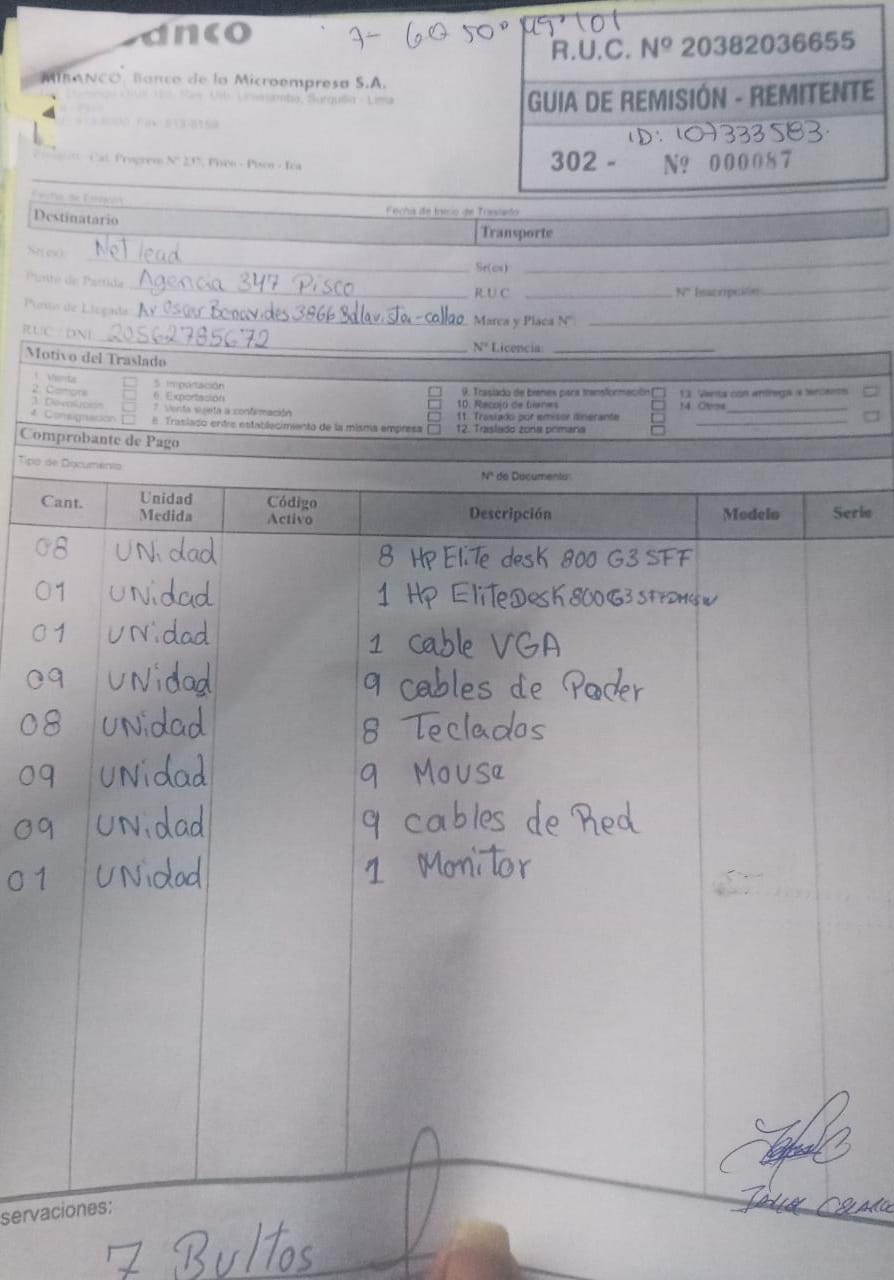 anco
7- 60 50° 49' 101
R.U.C. Nº 20382036655
MIBANCO, Banco de la Microempresa S.A.
GUIA DE REMISIÓN - REMITENTE
ID: 107333583.
302 - Nº 000087
Cal. Progreso Nº 237, Pisco - Pisco - Ica
Fecha de Emisión
Fecha de Inicio de Traslado
Destinatario
Transporte
Señor(es): Net lead
Señor(es):
Punto de Partida: Agencia 347 Pisco
R.U.C.
Nº Inscripción:
Punto de Llegada: Av Oscar Benavides 3866 Bellavista-callao
Marca y Placa Nº:
RUC / DNI: 20562785672
Nº Licencia:
Motivo del Traslado
1. Venta
2. Compra
3. Devolución
4. Consignación
5. Importación
6. Exportación
7. Venta sujeta a confirmación
8. Traslado entre establecimiento de la misma empresa
9. Traslado de bienes para transformación
10. Recojo de bienes
11. Traslado por emisor itinerante
12. Traslado zona primaria
13. Venta con entrega a terceros
14. Otros
Comprobante de Pago
Tipo de Documento
Nº de Documento:
Cant. Unidad Medida Código Activo Descripción Modelo Serie
08 UNidad 8 Hp EliTe desk 800 G3 SFF
01 UNidad 1 Hp EliteDesk 800 G3
01 UNidad 1 cable VGA
09 UNidad 9 cables de Poder
08 UNidad 8 Teclados
09 UNidad 9 Mouse
09 UNidad 9 cables de Red
01 UNidad 1 Monitor
servaciones:
7 Bultos